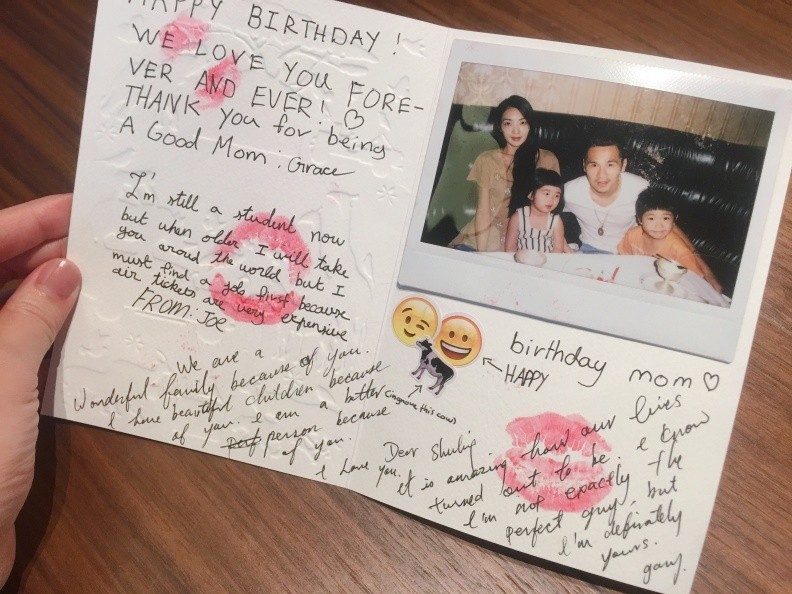 HAPPY BIRTHDAY!
WE LOVE YOU FORE-
VER AND EVER! ♡
THANK YOU for being
A Good Mom : Grace
I'm still a student now
but when older I will take
you aroud the world but I
must find a job first because
air tickets are very expensive
FROM: Joe
We are a
Wonderful family because of you.
I have beautiful children because
of you. I am a better
person because
of you.
I love you.
← HAPPY
birthday mom ♡
this cow
Dear Shulin
It is amazing how our lives
turned out to be. I know
I'm not exactly the
perfect guy, but
I'm definately
yours.
gary.